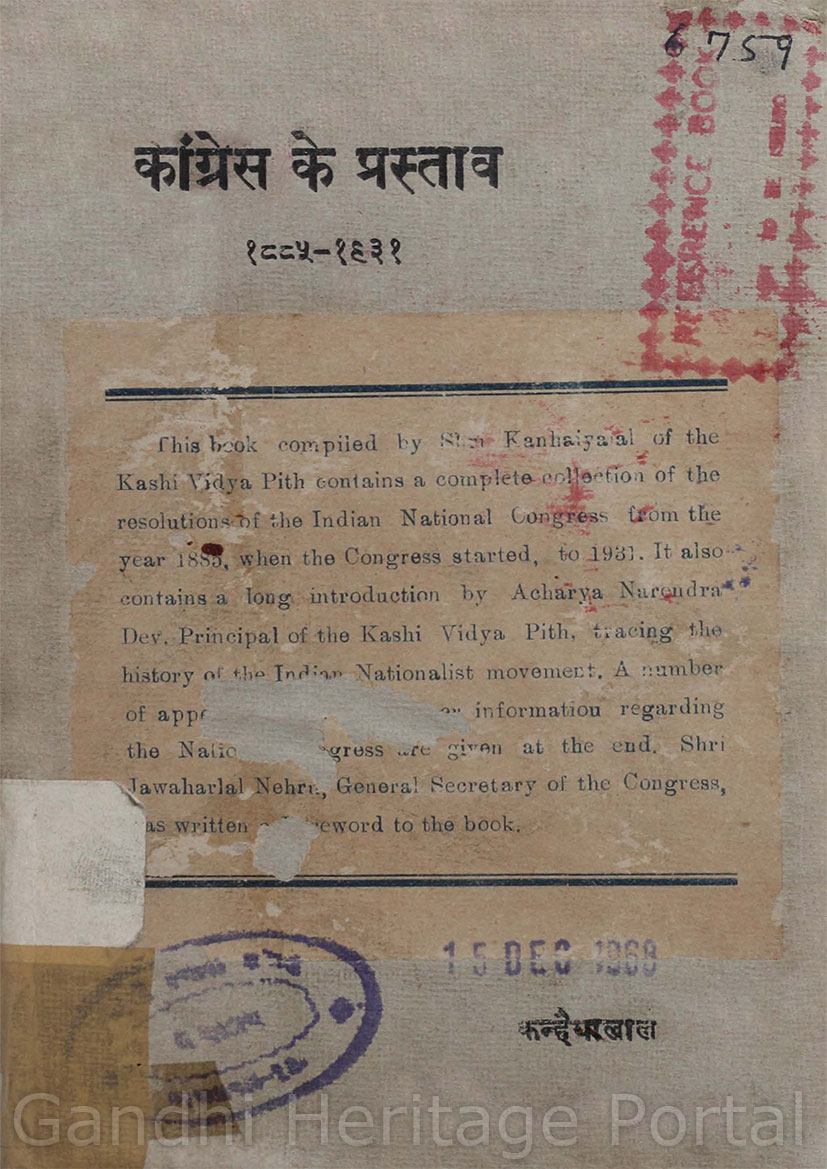 6759
REFERENCE BOOK
कांग्रेस के प्रस्ताव
१८८५-१९३१
This book compiled by Shri Kanhaiyalal of the
Kashi Vidya Pith contains a complete collection of the
resolutions of the Indian National Congress from the
year 1885, when the Congress started, to 1931. It also
contains a long introduction by Acharya Narendra
Dev, Principal of the Kashi Vidya Pith, tracing the
history of the Indian Nationalist movement. A number
of information regarding
the are given at the end. Shri
Jawaharlal Nehru, General Secretary of the Congress,
written to the book.
15 DEC 1968
कन्हैयालाल
Gandhi Heritage Portal